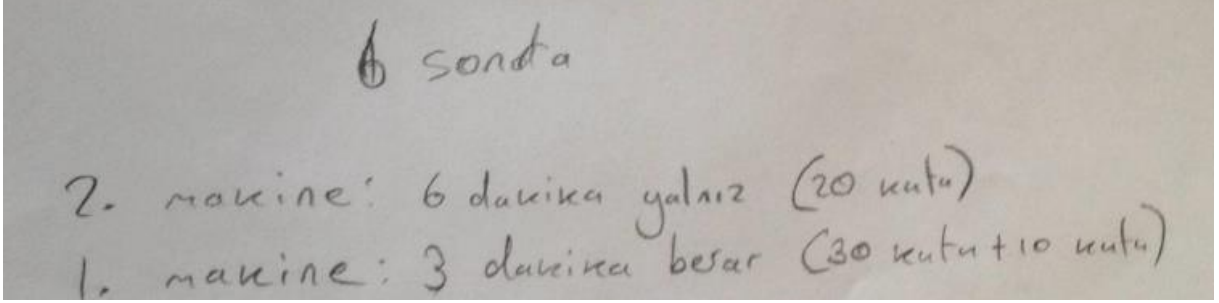 6 sonda
2. makine: 6 dakika yalnız (20 kutu)
1. makine: 3 dakika beraber (30 kutu + 10 kutu)